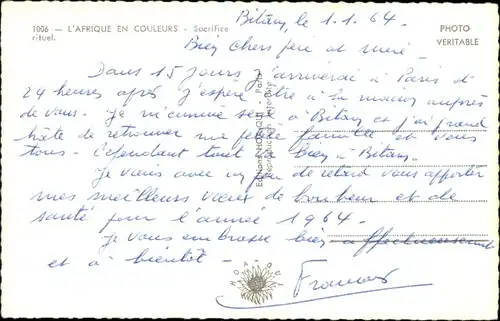 1006 - L'AFRIQUE EN COULEURS - Sacrifice
rituel.
PHOTO
VERITABLE
Bitam, le 1.1.64.
Bien chers père et mère -
Dans 15 jours j'arriverai à Paris et
24 heures après j'espère être à la maison auprès
de vous. Je m'ennuie seul à Bitam et j'ai grand
hâte de retrouver ma petite famille et vous
tous. Cependant tout va bien à Bitam.
Je viens avec un peu de retard vous apporter
mes meilleurs vœux de bonheur et de
santé pour l'année 1964.
Je vous embrasse bien affectueusement
et à bientôt -
HOA-QUI
Reproduction interdite